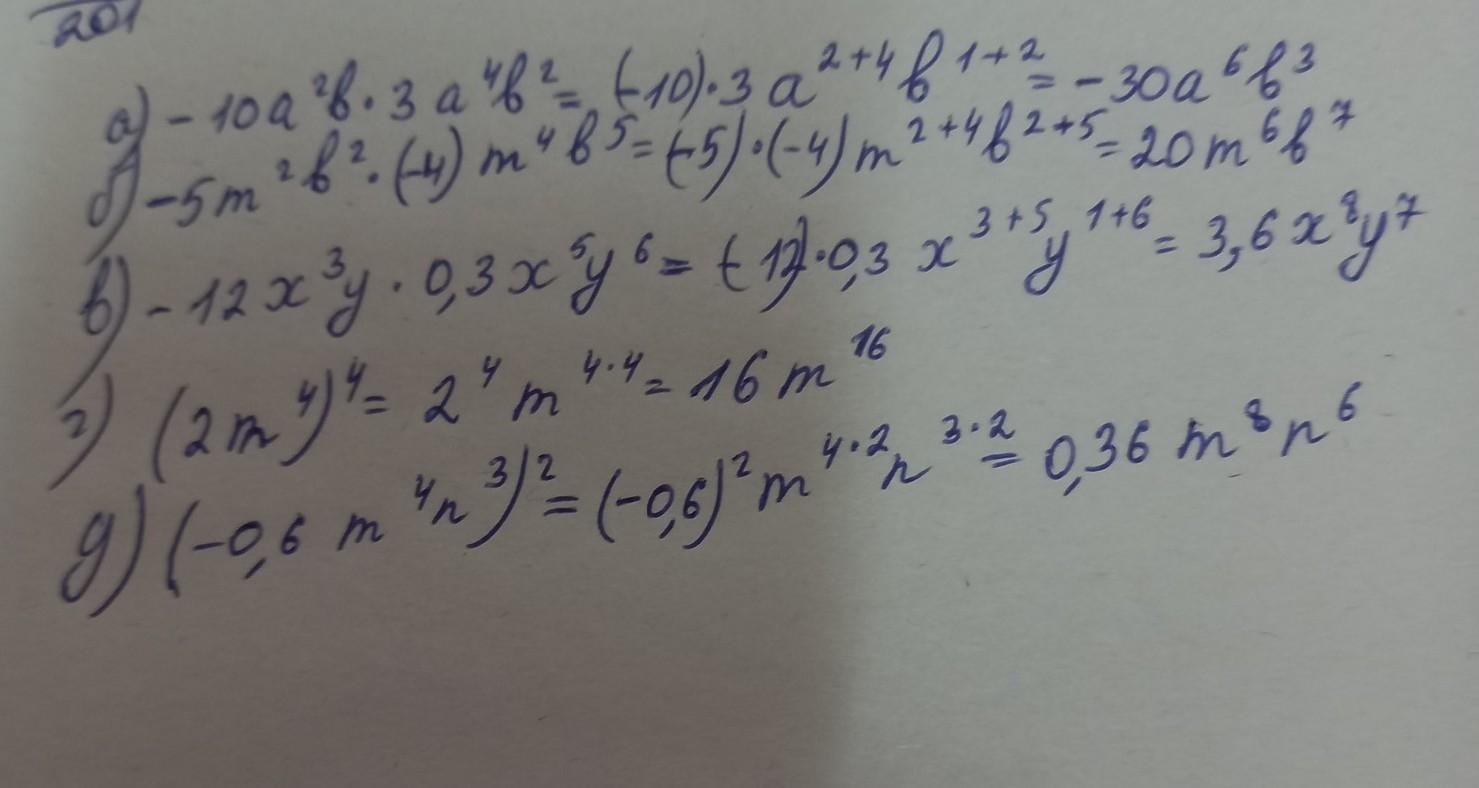 201
а) - 10a²b · 3a⁴b² = (-10) · 3a²⁺⁴b¹⁺² = - 30a⁶b³
б) -5m²b² · (-4) m⁴b⁵ = (-5) · (-4) m²⁺⁴b²⁺⁵ = 20m⁶b⁷
в) - 12x³y · 0,3x⁵y⁶ = (-12) · 0,3 x³⁺⁵y¹⁺⁶ = 3,6x⁸y⁷
г) (2m⁴)⁴ = 2⁴ m⁴·⁴ = 16m¹⁶
д) (-0,6 m⁴n³)² = (-0,6)² m⁴·²n³·² = 0,36 m⁸n⁶